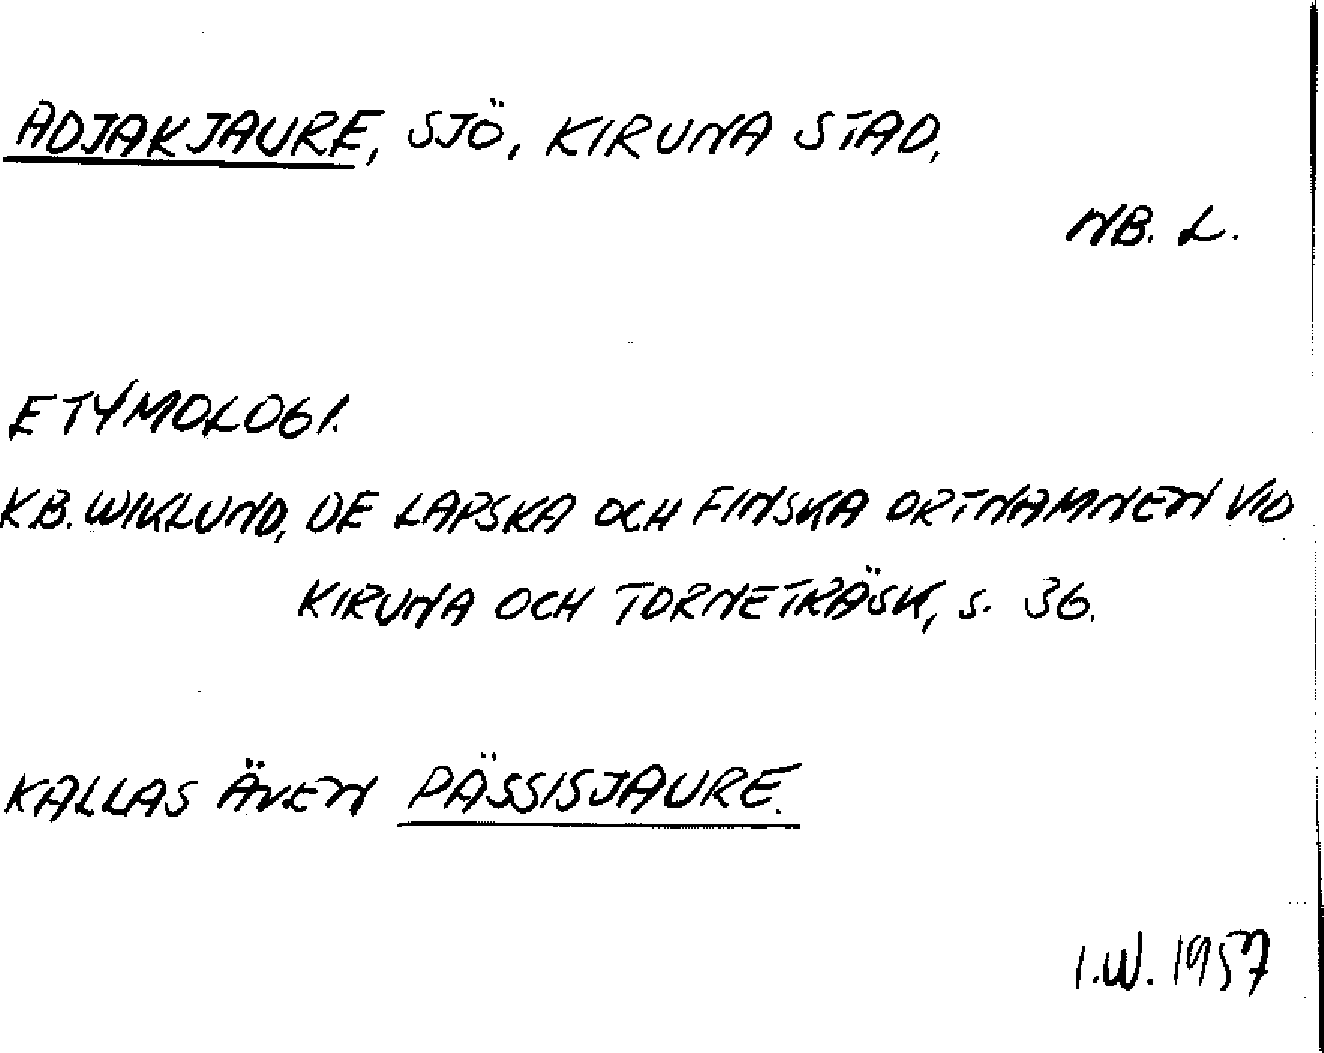 ADJAKJAURE, SJÖ, KIRUNA STAD,
NB. L.
ETYMOLOGI.
KB. WIKLUND, DE LAPSKA OCH FINSKA ORTNAMNEN VID
KIRUNA OCH TORNETRÄSK, S. 36.
KALLAS ÄVEN PÄSSISJAURE.
I.W. 1957